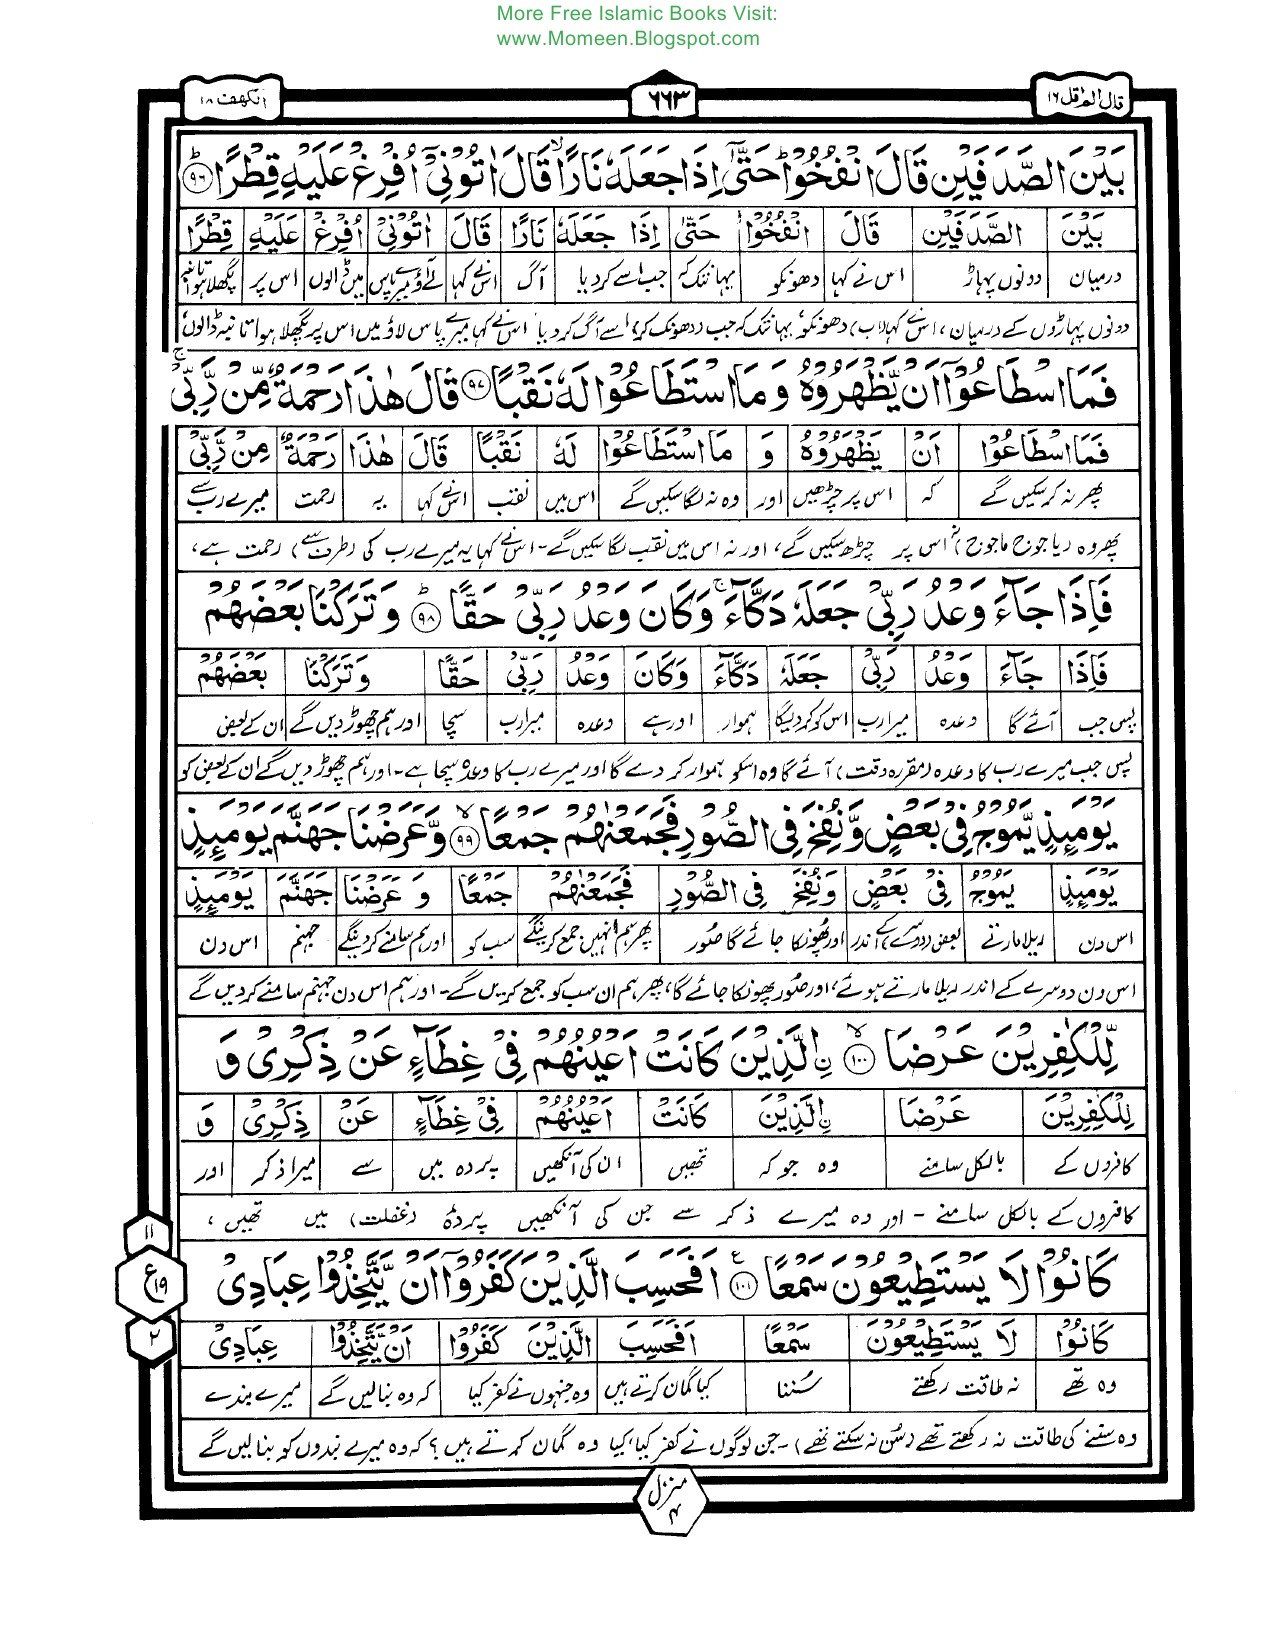 More Free Islamic Books Visit:
www.Momeen.Blogspot.com
قال الم اقل ١٦
٦٦٣
الکهف ١٨
بَيْنَ الصَّدَفَيْنِ قَالَ انْفُخُوْا ؕ حَتّٰۤى اِذَا جَعَلَهٗ نَارًا ۙ قَالَ اٰتُوْنِيْۤ اُفْرِغْ عَلَيْهِ قِطْرًا ؕ ٩٦
بَيْنَ الصَّدَفَيْنِ قَالَ انْفُخُوْا حَتّٰى اِذَا جَعَلَهٗ نَارًا قَالَ اٰتُوْنِيْ اُفْرِغْ عَلَيْهِ قِطْرًا
درمیان دونوں پہاڑ اس نے کہا دھونکو یہانتک کہ جب اسے کردیا آگ اس نے کہا لے آؤ میرے پاس میں ڈالوں اس پر پگھلا ہوا تانبہ
دونوں پہاڑوں کے درمیان، اس نے کہا (اب) دھونکو، یہانتک کہ جب (دھونک کر) اسے آگ کر دیا اس نے کہا میرے پاس لاؤ میں اس پر پگھلا ہوا تانبہ ڈالوں،
فَمَا اسْطَاعُوْۤا اَنْ يَّظْهَرُوْهُ وَ مَا اسْتَطَاعُوْا لَهٗ نَقْبًا ٩٧ قَالَ هٰذَا رَحْمَةٌ مِّنْ رَّبِّيْ ۚ
فَمَا اسْطَاعُوْا اَنْ يَّظْهَرُوْهُ وَ مَا اسْتَطَاعُوْا لَهٗ نَقْبًا قَالَ هٰذَا رَحْمَةٌ مِنْ رَّبِّيْ
پھر نہ کرسکیں گے کہ اس پر چڑھیں اور وہ نہ لگا سکیں گے اس میں نقب اس نے کہا یہ رحمت میرے رب سے
پھر وہ (یاجوج ماجوج) نہ اس پر چڑھ سکیں گے، اور نہ اس میں نقب لگا سکیں گے۔ اس نے کہا یہ میرے رب کی (طرف سے) رحمت ہے،
فَاِذَا جَآءَ وَعْدُ رَبِّيْ جَعَلَهٗ دَكَّآءَ ۚ وَكَانَ وَعْدُ رَبِّيْ حَقًّا ؕ ٩٨ وَ تَرَكْنَا بَعْضَهُمْ
فَاِذَا جَآءَ وَعْدُ رَبِّيْ جَعَلَهٗ دَكَّآءَ وَكَانَ وَعْدُ رَبِّيْ حَقًّا وَ تَرَكْنَا بَعْضَهُمْ
پس جب آئے گا وعدہ میرا رب اس کو کر دیگا ہموار اور ہے وعدہ میرا رب سچا اور ہم چھوڑ دیں گے ان کے بعض
پس جب میرے رب کا وعدہ (مقررہ وقت) آئے گا وہ اسکو ہموار کر دے گا اور میرے رب کا وعدہ سچا ہے۔ اور ہم چھوڑ دیں گے ان کے بعض کو
يَوْمَئِذٍ يَّمُوْجُ فِيْ بَعْضٍ وَّ نُفِخَ فِي الصُّوْرِ فَجَمَعْنٰهُمْ جَمْعًا ۙ ٩٩ وَّ عَرَضْنَا جَهَنَّمَ يَوْمَئِذٍ
يَوْمَئِذٍ يَمُوْجُ فِيْ بَعْضٍ وَنُفِخَ فِي الصُّوْرِ فَجَمَعْنٰهُمْ جَمْعًا وَ عَرَضْنَا جَهَنَّمَ يَوْمَئِذٍ
اس دن ریلا مارتے بعض (دوسرے کے) اندر اور پھونکا جائے گا صُور پھر ہم انہیں جمع کرینگے سب کو اور ہم سامنے کر دینگے جہنم اس دن
اس دن دوسرے کے اندر ریلا مارتے ہوئے، اور صُور پھونکا جائے گا، پھر ہم ان سب کو جمع کریں گے۔ اور ہم اس دن جہنم سامنے کر دیں گے
لِّلْكٰفِرِيْنَ عَرْضَا ۙ ١٠٠ نِ الَّذِيْنَ كَانَتْ اَعْيُنُهُمْ فِيْ غِطَآءٍ عَنْ ذِكْرِيْ وَ
لِلْكٰفِرِيْنَ عَرْضَا نِ الَّذِيْنَ كَانَتْ اَعْيُنُهُمْ فِيْ غِطَآءٍ عَنْ ذِكْرِيْ وَ
کافروں کے بالکل سامنے وہ جو کہ تھیں ان کی آنکھیں پردہ میں سے میرا ذکر اور
کافروں کے بالکل سامنے۔ اور وہ میرے ذکر سے جن کی آنکھیں پردۂ (غفلت) میں تھیں،
كَانُوْا لَا يَسْتَطِيْعُوْنَ سَمْعًا ۧ ١٠١ اَفَحَسِبَ الَّذِيْنَ كَفَرُوْۤا اَنْ يَّتَّخِذُوْا عِبَادِيْ
كَانُوْا لَا يَسْتَطِيْعُوْنَ سَمْعًا اَفَحَسِبَ الَّذِيْنَ كَفَرُوْا اَنْ يَّتَّخِذُوْا عِبَادِيْ
وہ تھے نہ طاقت رکھتے سُننا کیا گمان کرتے ہیں وہ جنہوں نے کفر کیا کہ وہ بنالیں گے میرے بندے
وہ سننے کی طاقت نہ رکھتے تھے (سُن نہ سکتے تھے)۔ جن لوگوں نے کفر کیا، کیا وہ گمان کرتے ہیں؟ کہ وہ میرے بندوں کو بنا لیں گے
١١
ع ١٩
٢
منزل ٤